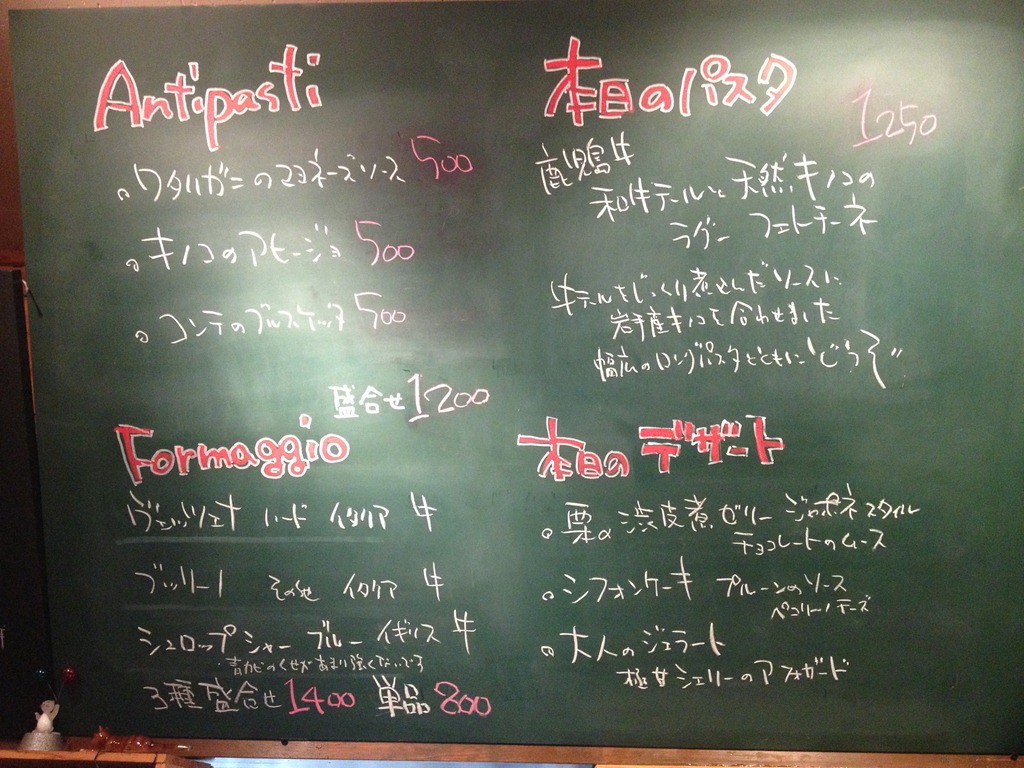 Antipasti
。ワタリガニのマヨネーズソース 500
。キノコのアヒージョ 500
。コンテのブルスケッタ 500
盛合せ 1200
Formaggio
ヴェッツェナ ハード イタリア 牛
ブッリーノ その他 イタリア 牛
シュロップシャーブルー イギリス 牛
・青カビのくせがあまり強くない
3種盛合せ 1400 単品 800
本日のパスタ
1250
鹿児島牛
和牛テールと天然キノコの
ラグー フェットチーネ
牛テールをじっくり煮込んだソースに
岩手産キノコを合わせました
幅広のロングパスタとともに
本日のデザート
。栗の渋皮煮ゼリー ジャポネスタイル
チョコレートのムース
。シフォンケーキ プルーンのソース
ペコリーノチーズ
。大人のジェラート
極甘シェリーのアフォガード